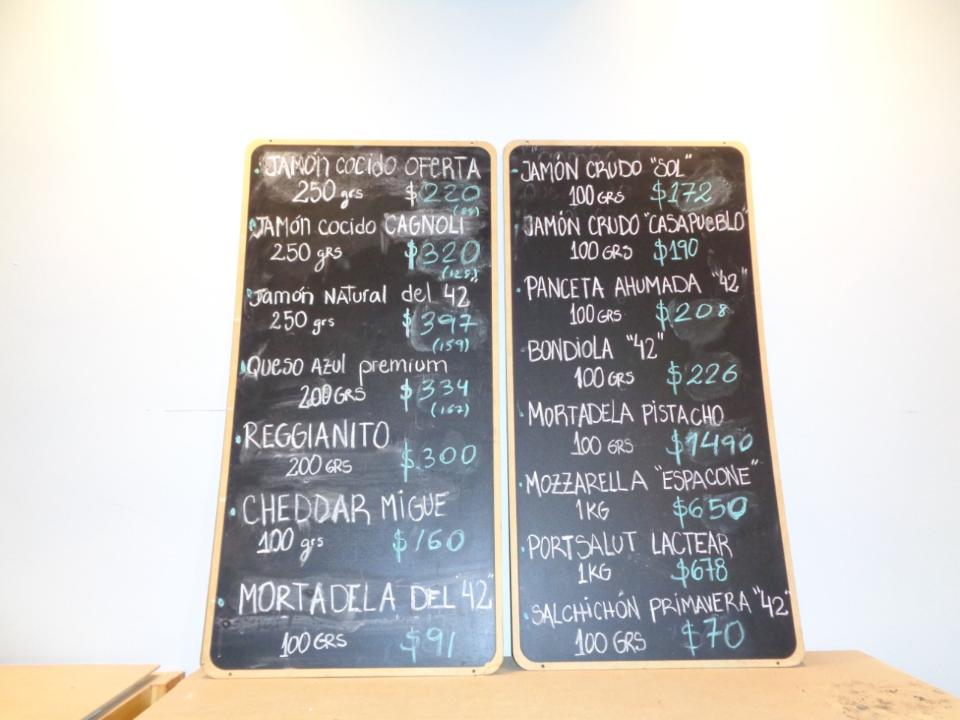 JAMÓN COCIDO OFERTA
250 grs $220
(88)
JAMÓN COCIDO CAGNOLI
250 grs $320
(128)
JAMÓN NATURAL del "42"
250 grs $397
(159)
QUESO AZUL premium
200 GRS $334
(167)
REGGIANITO
200 GRS $300
CHEDDAR MIGUE
100 grs $160
MORTADELA DEL "42"
100 GRS $91
JAMÓN CRUDO "SOL"
100 GRS $172
JAMÓN CRUDO "CASAPUEBLO"
100 GRS $190
PANCETA AHUMADA "42"
100 GRS $208
BONDIOLA "42"
100 GRS $226
MORTADELA PISTACHO
100 GRS $1490
MOZZARELLA "ESPACONE"
1KG $650
PORTSALUT LACTEAR
1KG $678
SALCHICHÓN PRIMAVERA "42"
100 GRS $70